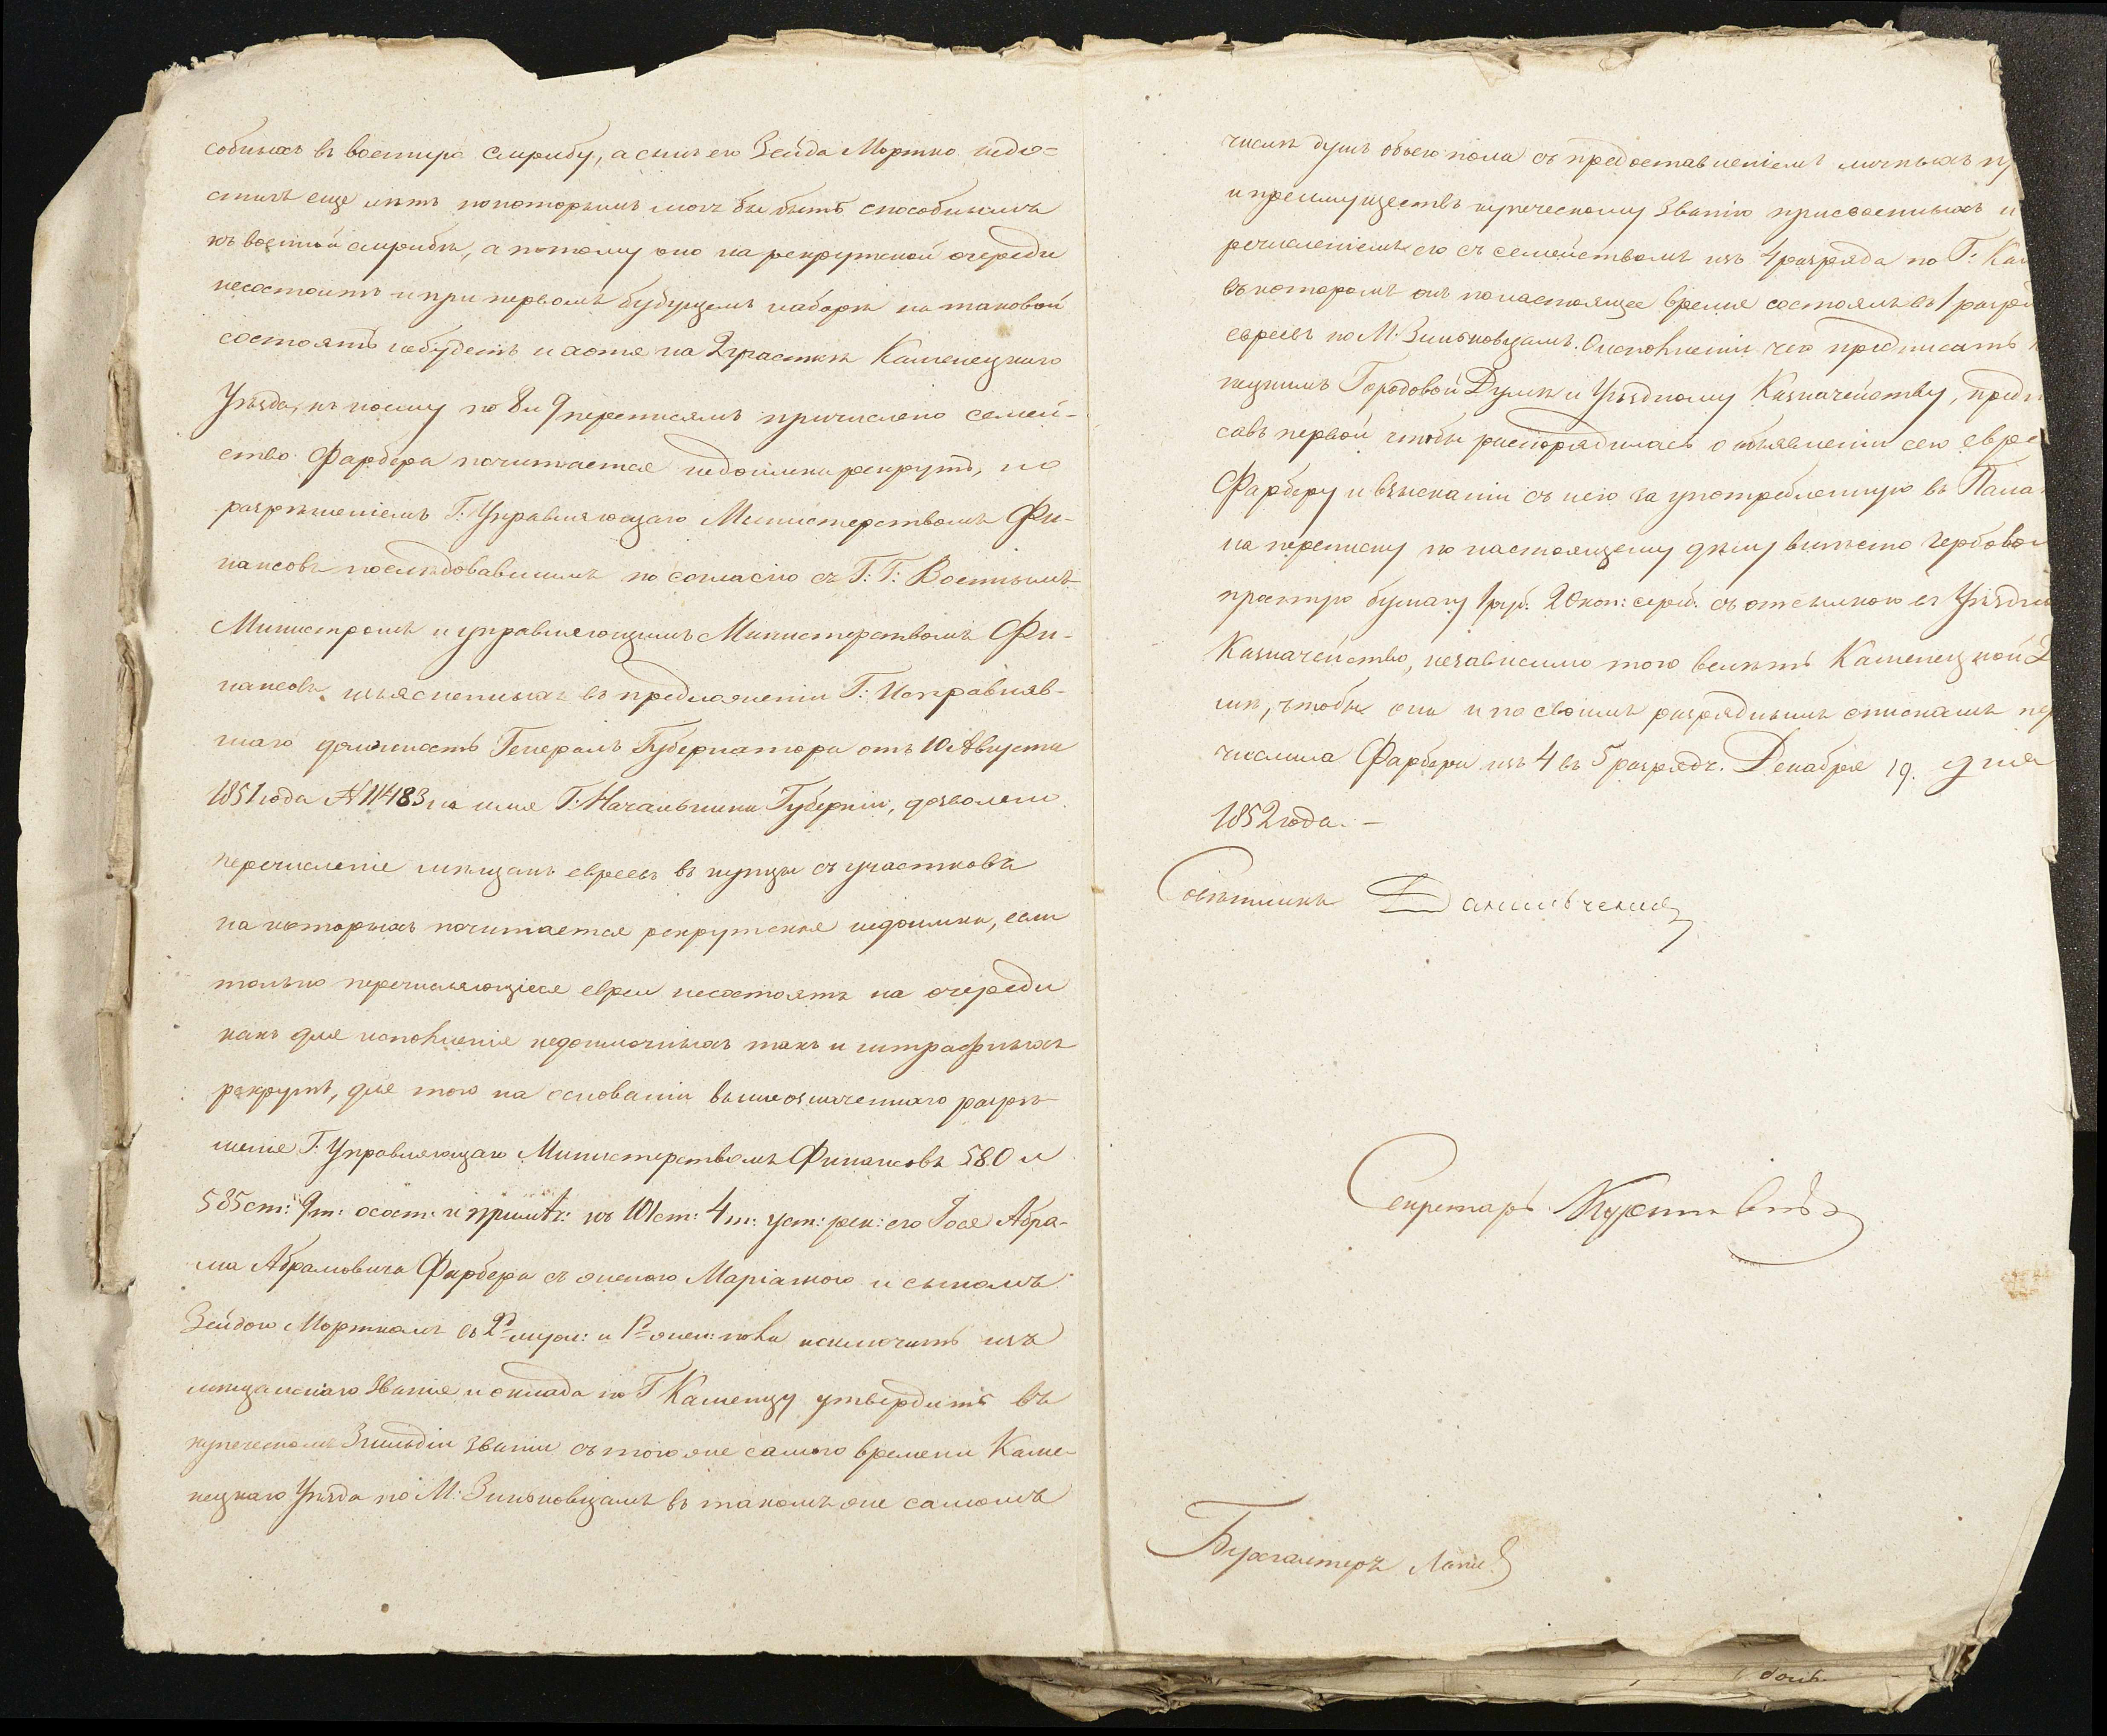 собныхъ въ военную службу, а сынъ его Зейда Мортко недо=
стигъ еще лѣтъ по которымъ могъ бы быть способнымъ
къ военной службѣ, а потому оно на рекрутской очереди
несостоитъ и при первомъ будущемъ наборѣ на таковой
состоять небудетъ и хотя на 2 участкѣ Каменецкаго
Уѣзда, къ коему по 8 и 9 переписямъ причислено семей-
ство Фарбера почитается недоимка рекрутъ, но
разрѣшеніемъ Г. Управляющаго Министерствомъ Фи-
нансовъ послѣдовавшимъ по согласію съ Г: Г: Военнымъ
Министромъ и управляющимъ Министерствомъ Фи-
нансовъ изъясненныхъ въ предложеніи Г: Исправляв-
шаго должность Генералъ Губернатора отъ 10 Августа
1851 года № 11483 на имя Г. Начальника Губерніи, дозволено
перечисленіе мѣщанъ евреевъ въ купцы съ участковъ
на которыхъ почитается рекрутская недоимка, если
только перечисляющіеся евреи несостоятъ на очереди
какъ для исполненія недоимочныхъ такъ и штрафныхъ
рекрутъ, для того на основаніи вышеозначеннаго разрѣ-
шенія Г. Управляющаго Министерствомъ Финансовъ 580 и
585 ст: 9 т: о сост: и примѣч: къ 101 ст: 4 т: уст: рек: его Абра-
ма Абрамовича Фарбера съ женою Маріамою и сыномъ
Зейдою Морткомъ въ 2й муж: и 1й жен: пола исключить изъ
мѣщанскаго званія и оклада по Г Каменцу утвердить въ
купеческомъ 3 гильдіи званіи съ того же самаго времени Каме-
нецкаго Уѣзда по М: Зиньковцамъ въ такомъ же самомъ
числѣ душъ обоего пола съ предоставленіемъ личныхъ
и преимуществъ купеческому званію присвоенныхъ и
речисленіемъ его съ семействомъ изъ 4 разряда по Г:
въ которомъ онъ по настоящее время состоялъ въ 1
евреевъ по М: Зиньковцамъ. О исполненіи чего предписать
нецкимъ Городовой Думѣ и Уѣздному Казначейству,
савъ первой чтобы распорядилась о объявленіи сего
Фарберу и взысканіи съ него за употребленную въ
на переписку по настоящему дѣлу вмѣсто гербовой
простую бумагу 1 руб. 20 коп: сереб. съ отсылкою въ
Казначейство, независимо того велѣть Каменецкой
мѣ, чтобы она и по своимъ разряднымъ спискамъ
числила Фарбера изъ 4 въ 5 разрядъ. Декабря 19. дня
1852 года. –
Совѣтникъ Данильченко
Секретарь
Бухгалтеръ